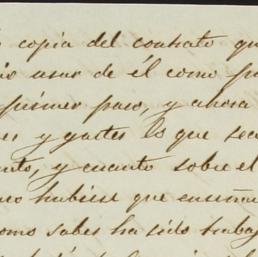 copia del contrato qu
usar de él como p
primer paso, y ahora
y gastes lo que sea
nto, y cuanto sobre el
hubiese que enseña
como sabes ha sido trabaj